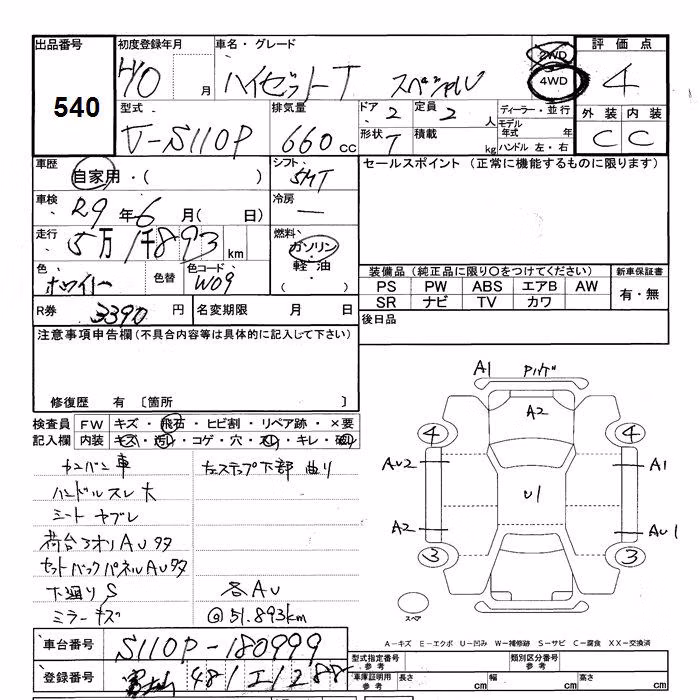 出品番号 初度登録年月 車名・グレード 2WD 評価点
540 H10 月 ハイゼットT スペシャル 4WD 4
型式 排気量 ドア 2 定員 2 人 ディーラー・並行 外装 内装
V-S110P 660 cc 形状 T 積載 kg モデル年式 年 C C
ハンドル 左・右
車歴 自家用・( ) シフト 5MT セールスポイント(正常に機能するものに限ります)
車検 29年6月( 日) 冷房 ー
走行 5万1千893 km 燃料 ガソリン・軽油・( )
色 ホワイト 色替 色コード W09 装備品(純正品に限り○をつけてください) 新車保証書
PS PW ABS エアB AW 有・無
SR ナビ TV カワ
R券 3390 円 名変期限 月 日 後日品
注意事項申告欄(不具合内容等は具体的に記入して下さい)
修復歴 有 〔箇所 〕
検査員 FW キズ・飛石・ヒビ割・リペア跡・×要
記入欄 内装 キズ・汚レ・コゲ・穴・スレ・キレ・破レ
カンバン車 左ステップ下部 曲り
ハンドルスレ大
シートヤブレ
荷台アオリAUサタ
セットバックパネルAUサタ
下廻りS 各AU
ミラーキズ @51.893km
A1 Pハゲ
A2
4 4
AU2 A1
U1
A2 AU1
3 3
スペア
A-キズ E-エクボ U-凹み W-補修跡 S-サビ C-腐食 XX-交換済
車台番号 S110P-180999
型式指定番号 参考 類別区分番号 参考
登録番号 富士山 481 エ 1288
車庫証明用 参考 長さ cm 幅 cm 高さ cm